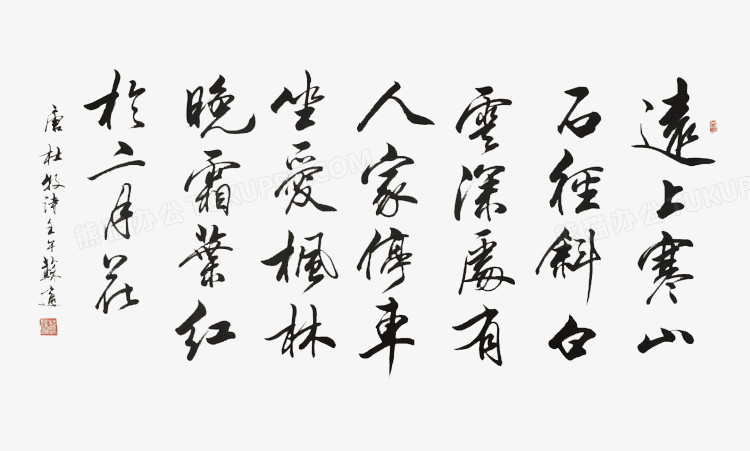 遠上寒山
石徑斜白
雲深處有
人家停車
坐愛楓林
晚霜葉紅
於二月花
唐杜牧詩
熊猫办公 TUKUPPT.COM
熊猫办公 TUKUPPT.COM